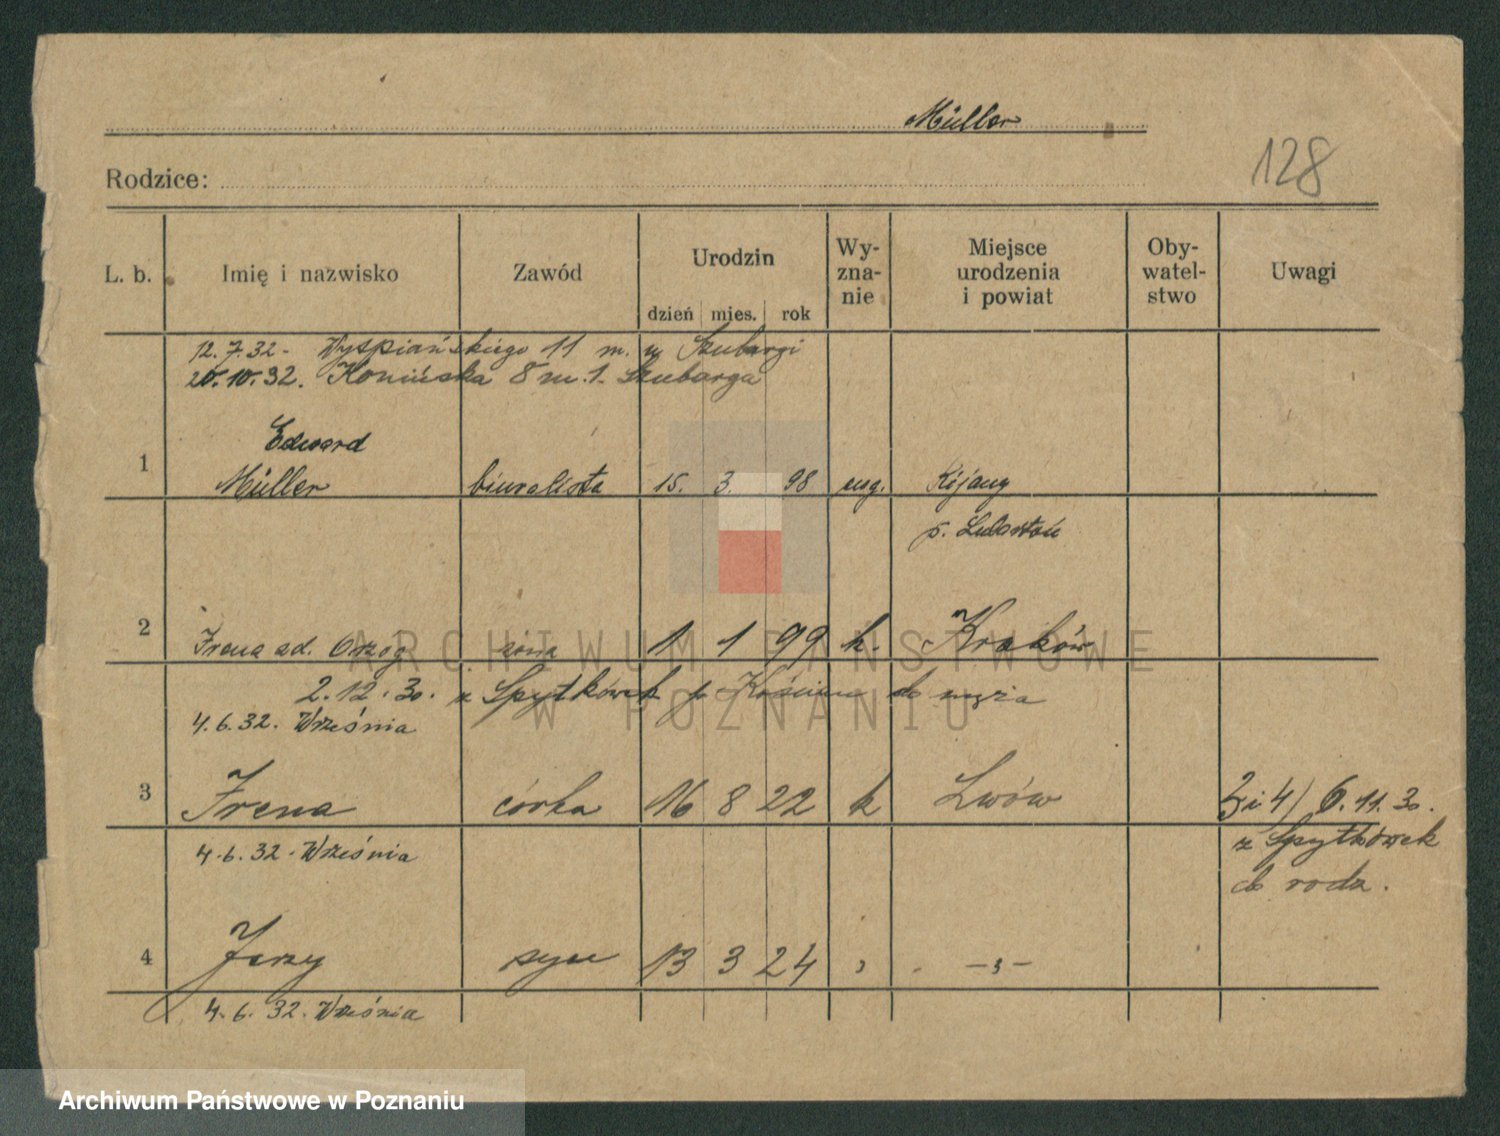 Müller
128
Rodzice:
L. b. Imię i nazwisko Zawód Urodzin dzień mies. rok Wy-zna-nie Miejsce urodzenia i powiat Oby-watel-stwo Uwagi
12.7.32 - Wyspiańskiego 11 m. u Szubargi
20.10.32. Konińska 8 m. 1. Szubarga
Edward
1 Müller biuralista 15. 3. 98 ewg. Kijany
p. Lubartów
2 Irena ad. Orzóg żona 1 1 99 k. Kraków
2.12.30. z Spytkówek p. Kościan do męża
4.6.32. Września
3 Irena córka 16 8 22 k Lwów 3 i 4) 6.11.30.
z Spytkówek
4.6.32. Września
do rodz.
4 Jerzy syn 13 3 24 " - " -
4.6.32. Września
ARCHIWUM PAŃSTWOWE
W POZNANIU
Archiwum Państwowe w Poznaniu